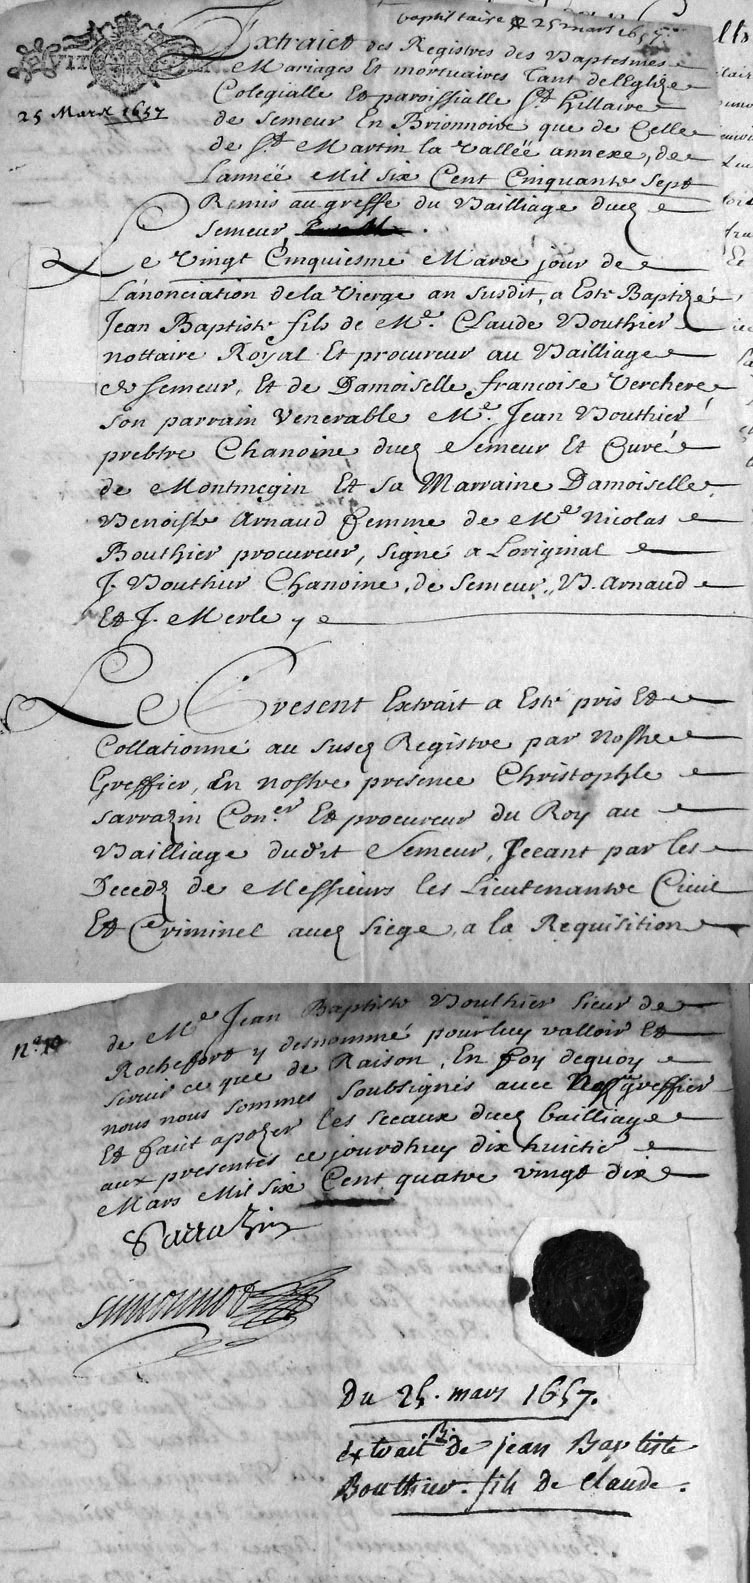 baptistaire du 25 mars 1657
25 Mars 1657
Extraict des Registres des Baptesmes
Mariages Et mortuaires Tant de lEglize
Colegialle Et paroissialle St hillaire
de Semeur En Brionnoise que de Celle
de St Martin la Valleë annexe, de
Lanneë Mil six Cent Cinquante sept
Remis au greffe du Bailliage dud
Semeur
Le Vingt Cinquiesme Mars jour de
Lanonciation de la Vierge an susdit, a Esté Baptizé
Jean Baptiste fils de Me. Claude Bouthier
nottaire Royal Et procureur au Bailliage
de Semeur, Et de Damoiselle francoise Verchere
son parrain Venerable Me. Jean Bouthier
prebtre Chanoine dud Semeur Et Curé
de Montmegin Et sa Marraine Damoiselle
Benoiste Arnaud femme de Me Nicolas
Bouthier procureur, signé a Loriginal
J. Bouthier Chanoine, de Semeur, B. Arnaud
Et J. Merle
Le Present Extrait a Esté pris Et
Collationné au susd Registre par Nostre
Greffier, En nostre presence Christophle
Sarrazin Coner Et procureur du Roy au
Bailliage dudit Semeur, Jceant par les
Deceds de Messieurs les Lieutenants Civil
Et Criminel aud siege, a la Requisition
de Me Jean Baptiste Bouthier sieur de
Rochefort y desnommé pour luy valloir Et
servir ce que de Raison, En foy dequoy
nous nous sommes soubsignés avec greffier
Et faict apozer les sceaux dud bailliage
aux presentes ce jourdhuy dix huictie
Mars Mil six Cent quatre vingt dix
Sarrazin
Simonnot
Du 25. mars 1657.
extrait B. de jean Baptiste
Bouthier. fils de Claude.